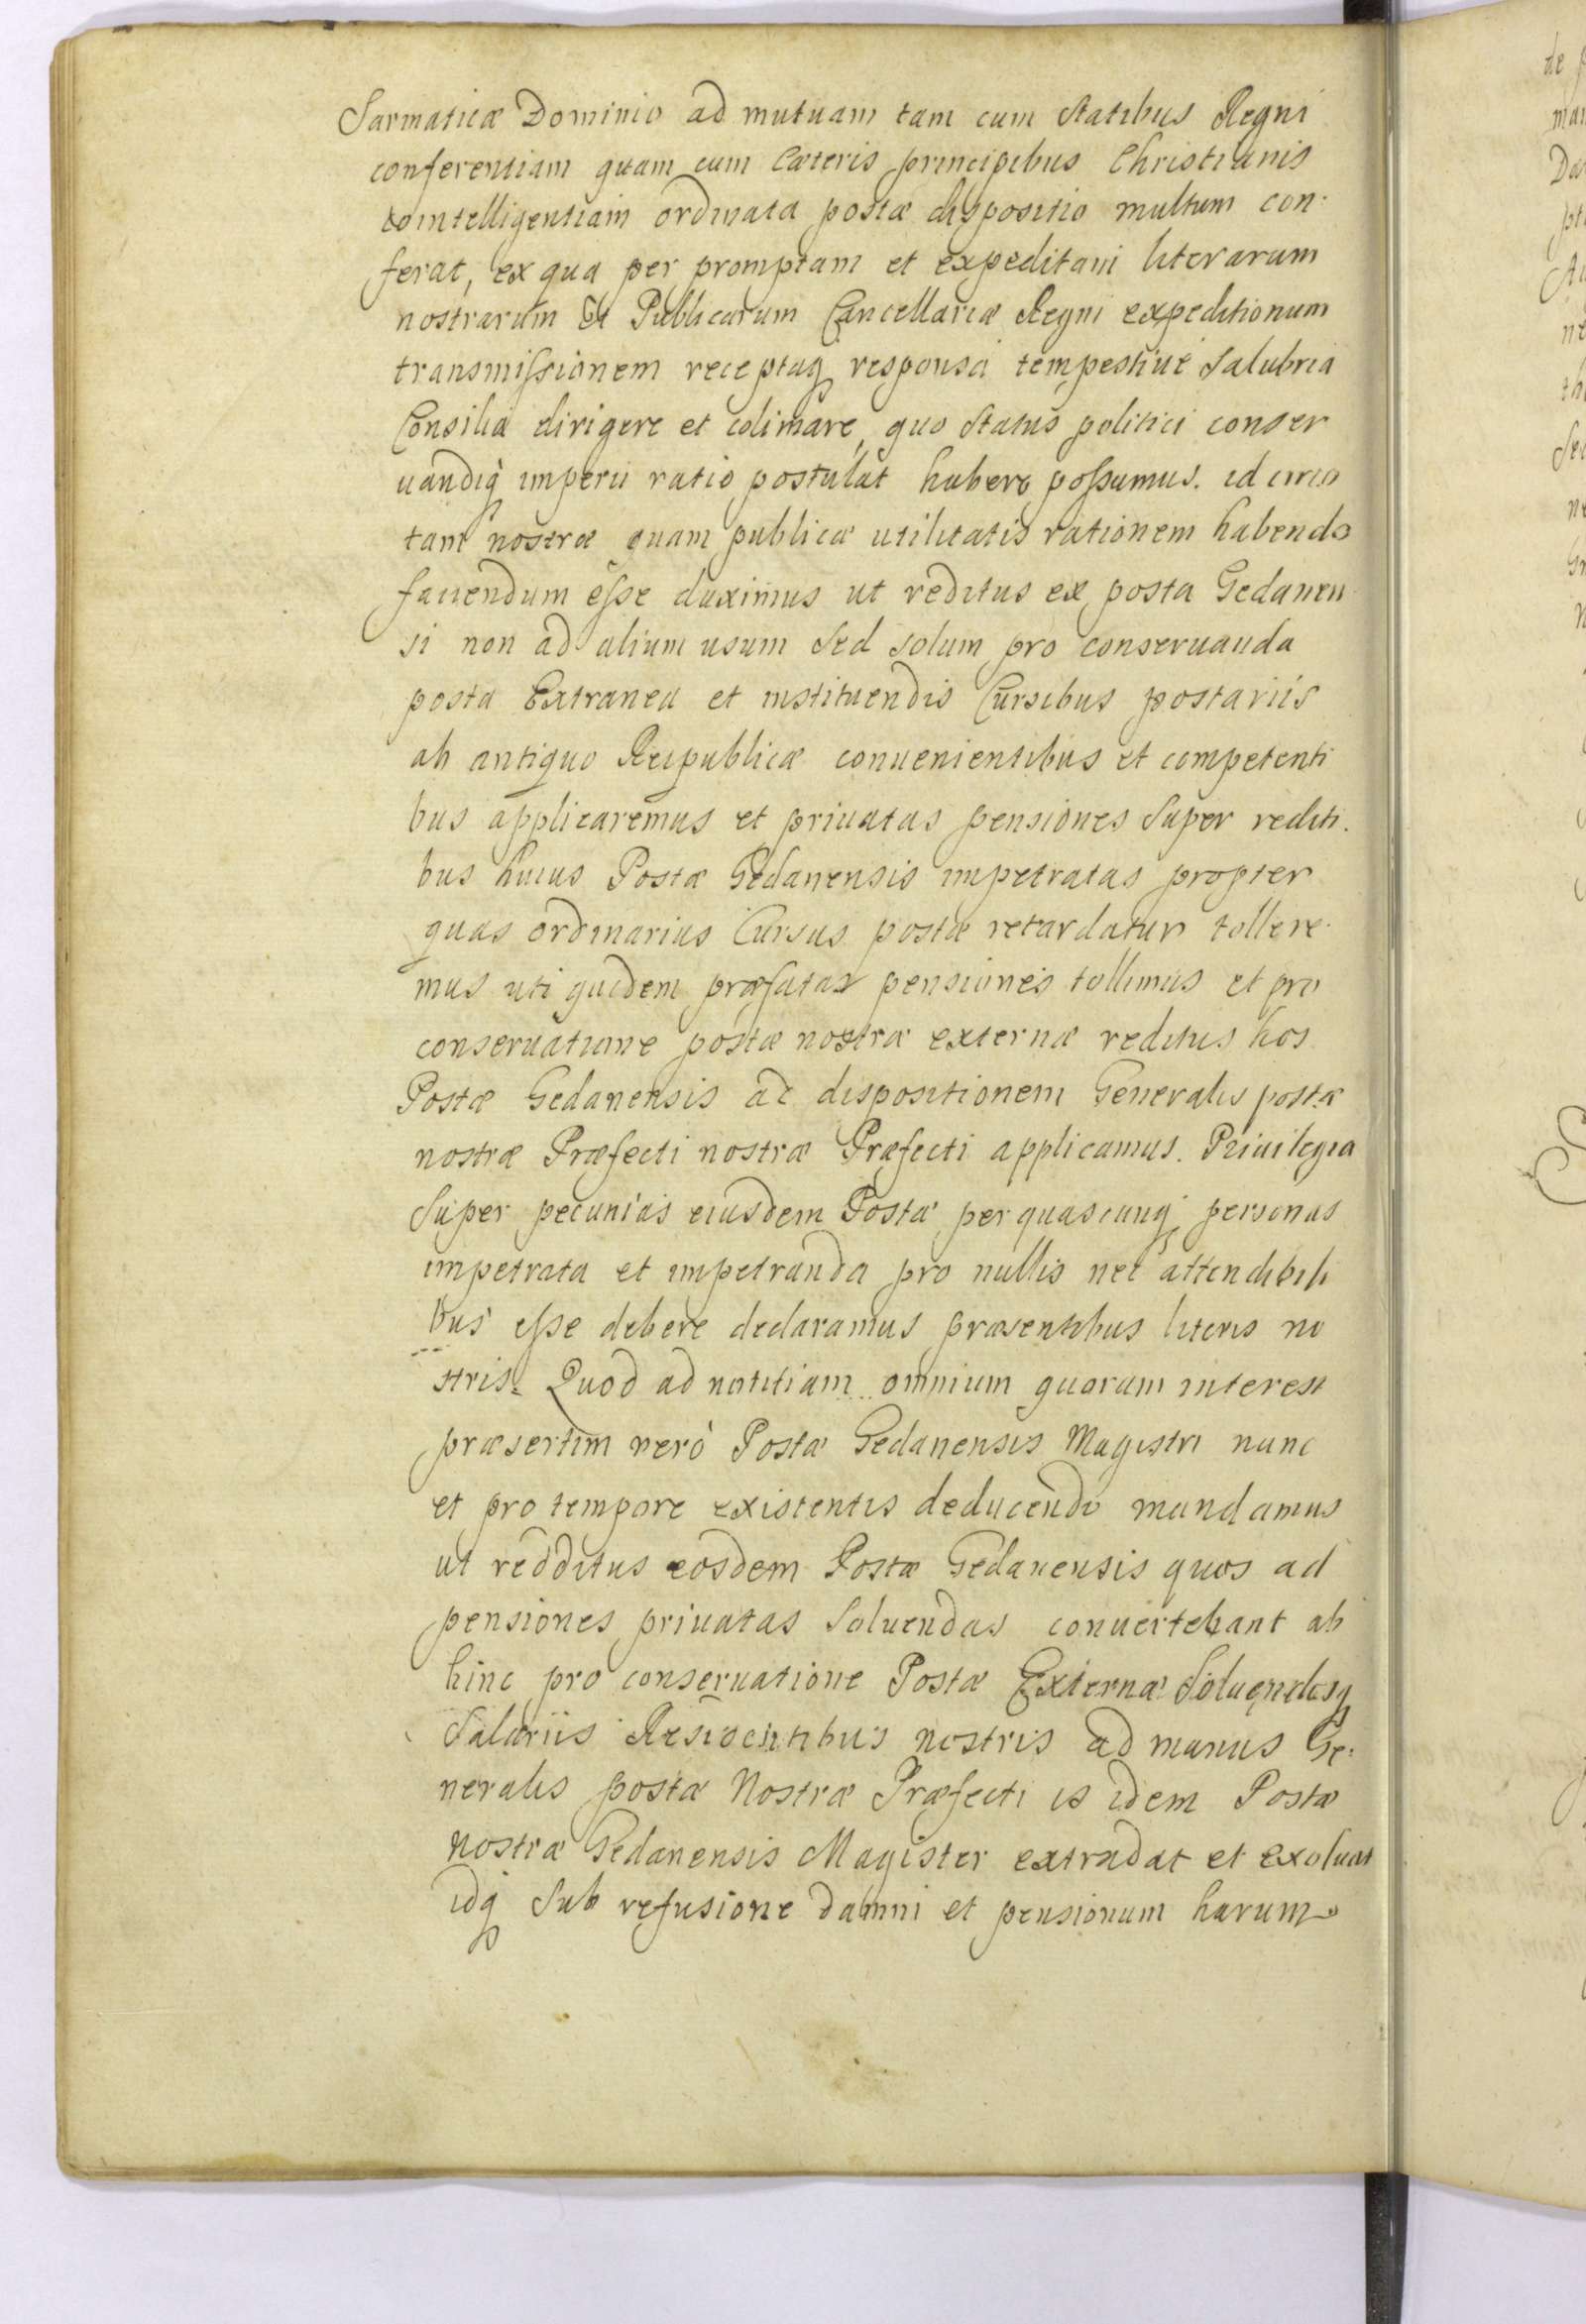 Sarmaticæ Dominio ad mutuam tam cum statibus Regni
conferentiam quam cum Cæteris principibus Christianis
cointelligentiam ordinata postæ dispositio multum con-
ferat, ex qua per promptam et expeditam literarum
nostrarum Et Publicarum Cancellariæ Regni expeditionum
transmissionem receptaq responsa tempestiue Salubria
Consilia dirigere et colimare, quo Status politici conser
uandiq imperii ratio postulat habere possumus. id circo
tam nostræ quam publicæ utilitatis rationem habendo
faciendum esse duximus ut reditus ex posta Gedanen
si non ad alium usum Sed solum pro conseruanda
posta Extranea et instituendis Cursibus postariis
ab antiquo Reipublicæ conuenientibus et competenti
bus applicaremus et priuatas pensiones Super rediti.
bus huius Postæ Gedanensis impetratas propter
quas ordinarius Cursus postæ retardatur tollere.
mus uti quidem præfatas pensiones tollimus et pro
conseruatione postæ nostræ externæ reditus hos
Postæ Gedanensis ad dispositionem Generalis postæ
nostræ Præfecti nostræ Præfecti applicamus. Priuilegia
Super pecunias eiusdem Postæ per quascunq personas
impetrata et impetranda pro nullis nec attendibili
bus esse debere declaramus præsentibus literis no
stris. Quod ad notitiam omnium quorum interest
præsertim verò Postæ Gedanensis Magistri nunc
et pro tempore existentis deducendo mandamus
ut redditus eosdem Postæ Gedanensis quos ad
pensiones priuatas Soluendas conuertebant ab
hinc pro conseruatione Postæ Externæ Soluendisq
Salariis Residentibus nostris ad manus Ge-
neralis postæ Nostræ Præfecti is idem Postæ
nostræ Gedanensis Magister extradat et exoluat
idq Sub refusione damni et pensionum harum